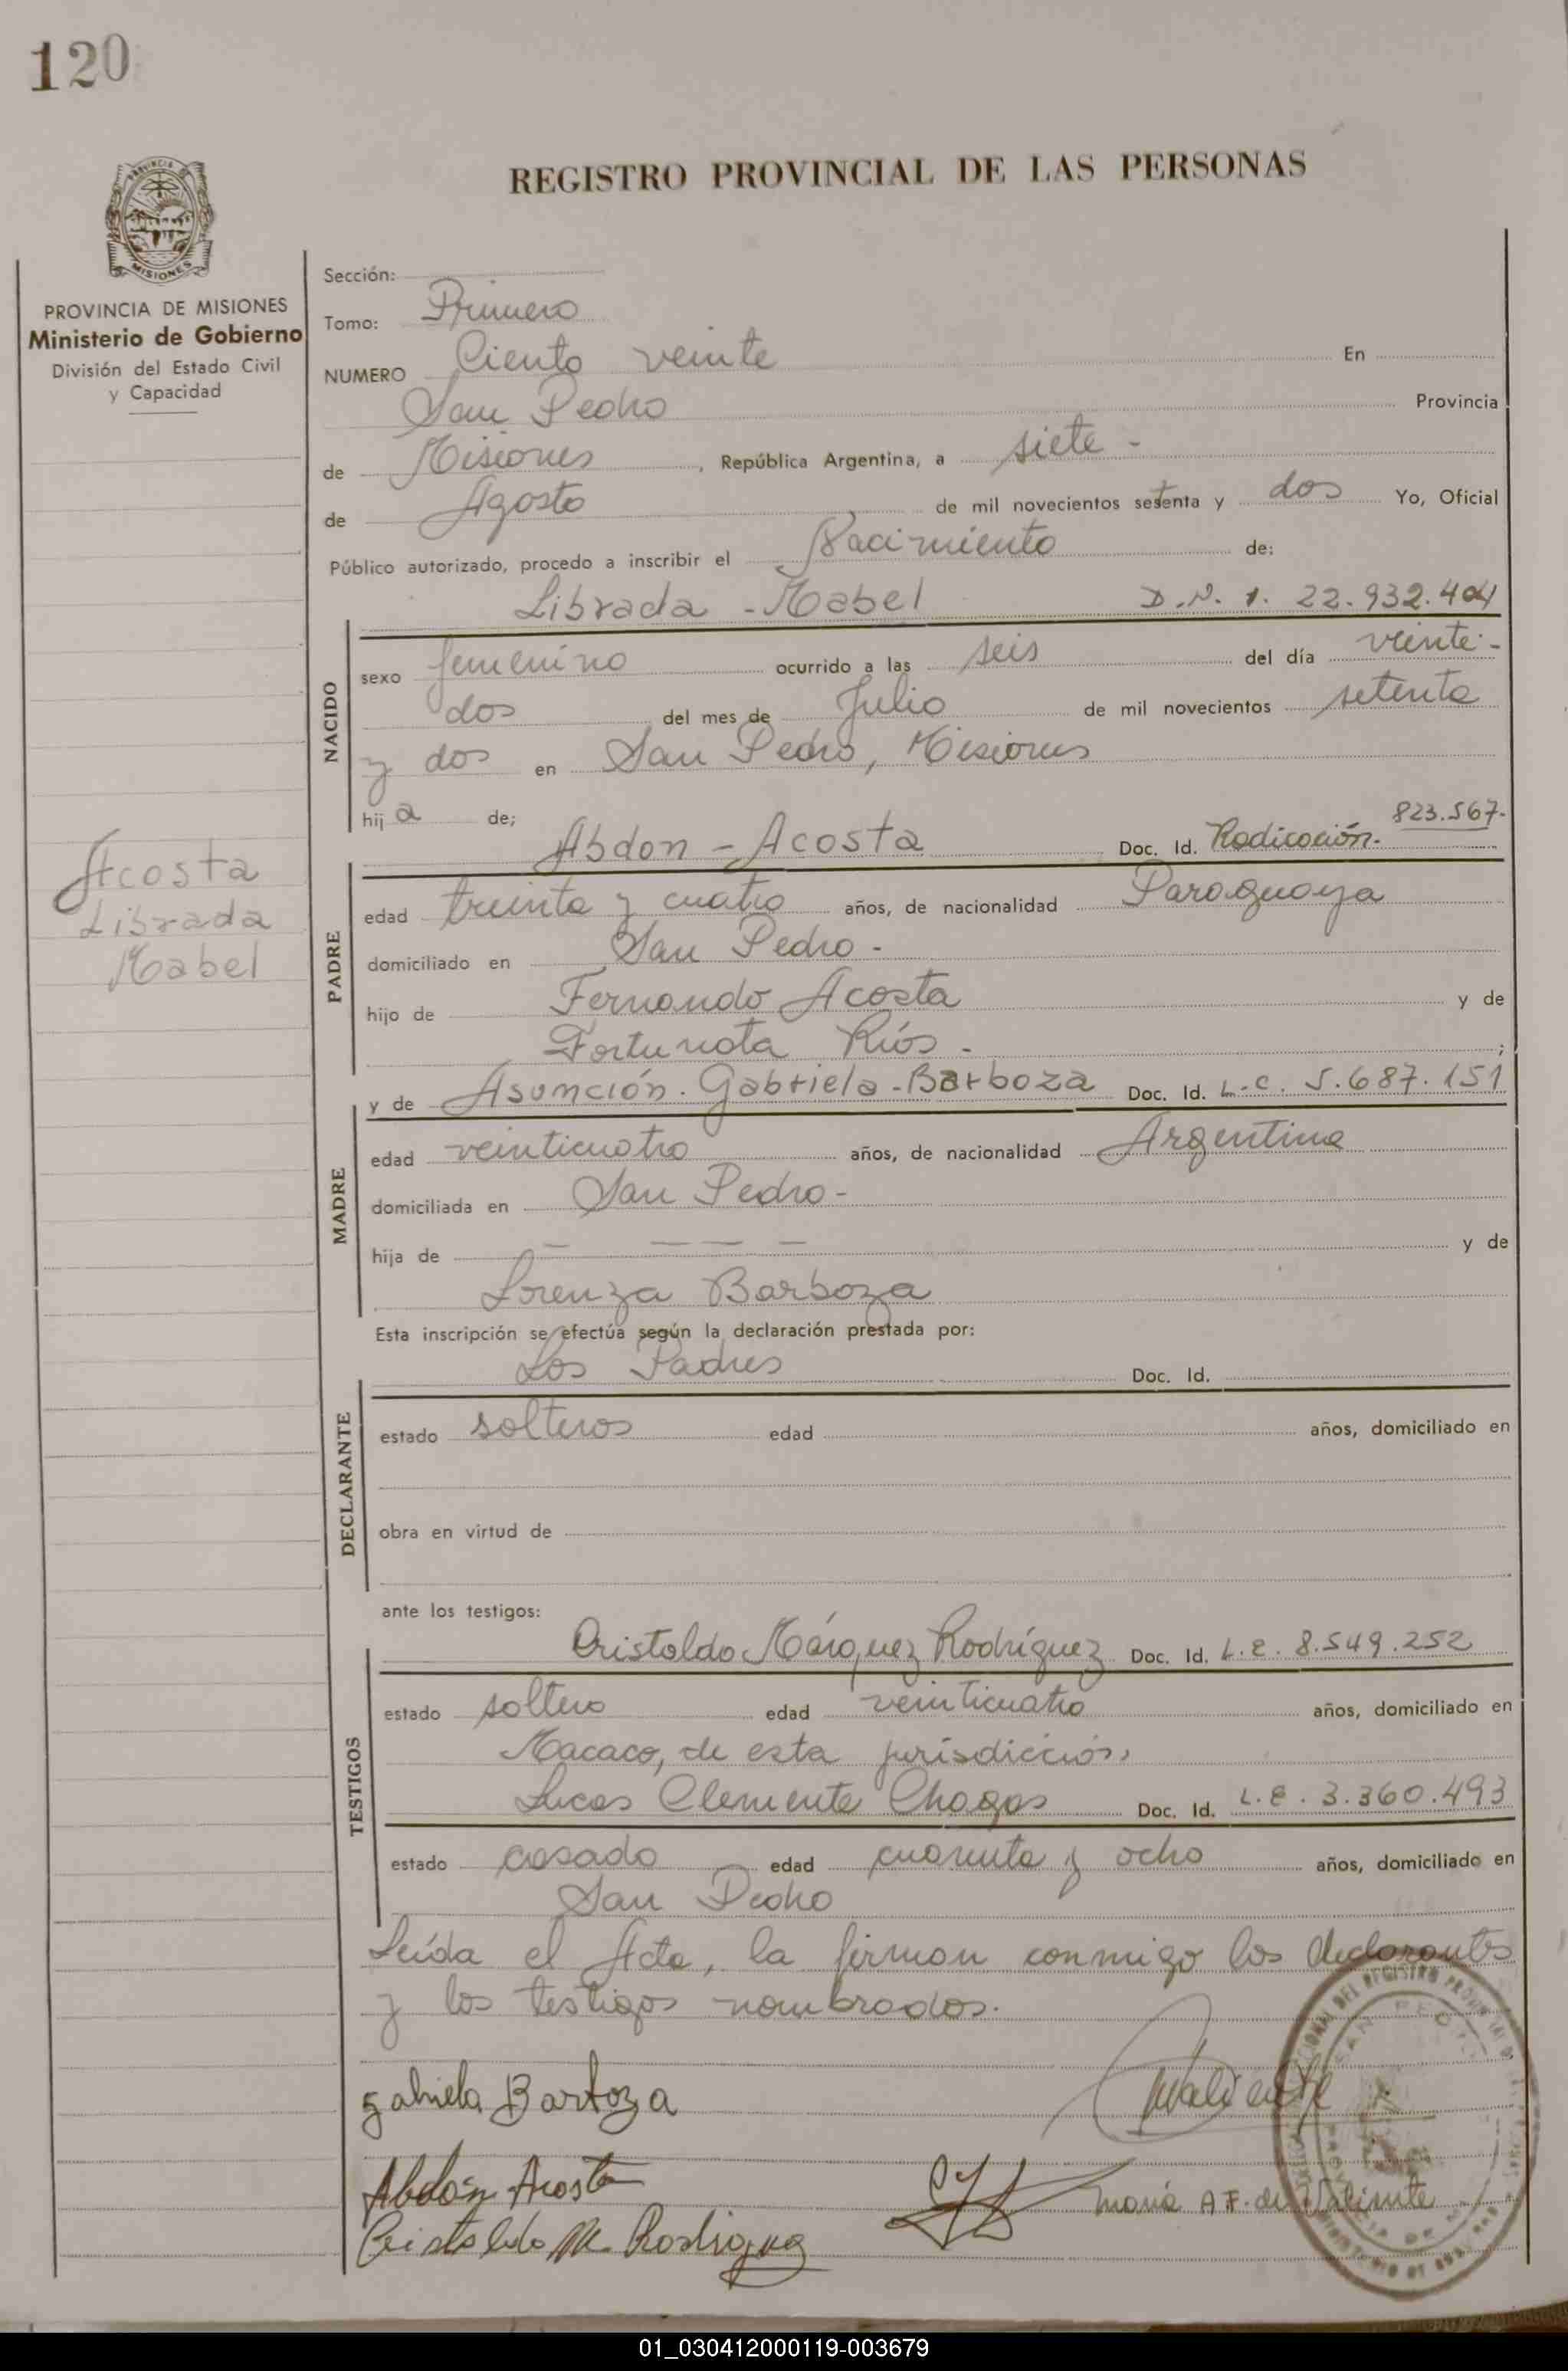 120
REGISTRO PROVINCIAL DE LAS PERSONAS
MISIONES
PROVINCIA DE MISIONES
Ministerio de Gobierno
División del Estado Civil
y Capacidad
Acosta
Librada
Mabel
Sección:
Tomo: Primero
NUMERO Ciento veinte En
San Pedro Provincia
de Misiones, República Argentina, a siete -
de Agosto de mil novecientos setenta y dos Yo, Oficial
Público autorizado, procedo a inscribir el Nacimiento de:
Librada - Mabel D.N.I. 22.932.404
NACIDO
sexo femenino ocurrido a las seis del día veinte-
dos del mes de Julio de mil novecientos setenta
y dos en San Pedro, Misiones
hij a de;
Abdon - Acosta Doc. Id. Radicación. 823.567.
PADRE
edad treinta y cuatro años, de nacionalidad Paraguaya
domiciliado en San Pedro -
hijo de Fernando Acosta y de
Fortunata Ríos - ;
y de Asunción. Gabriela - Barboza Doc. Id. L.C. 5.687.151
MADRE
edad veinticuatro años, de nacionalidad Argentina
domiciliada en San Pedro -
hija de - - - - y de
Lorenza Barboza
Esta inscripción se efectúa según la declaración prestada por:
Los Padres Doc. Id.
DECLARANTE
estado solteros edad años, domiciliado en
obra en virtud de
ante los testigos:
Cristaldo Márquez Rodríguez Doc. Id. L.E. 8.549.252
TESTIGOS
estado soltero edad veinticuatro años, domiciliado en
Macaco, de esta jurisdicción,
Lucas Clemente Chagas Doc. Id. L.E. 3.360.493
estado casado edad cuarenta y ocho años, domiciliado en
San Pedro
Leída el Acta, la firman conmigo los declarantes
y los testigos nombrados.
Gabriela Barboza
Abdón Acosta
Cristaldo M. Rodriguez
María A F. de Valiente
SAN PEDRO
01_030412000119-003679